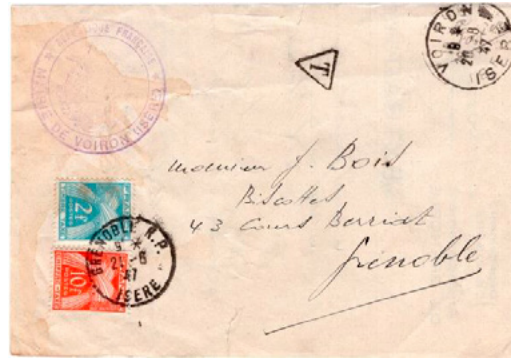 RÉPUBLIQUE FRANÇAISE
MAIRIE DE VOIRON (ISÈRE)
T
VOIRON
18 *
20 -8
47
ISERE
Monsieur J. Bois
Biscottes
43 Cours Berriat
Grenoble
2F
GRENOBLE R.P.
9 *
21 -8
47
ISERE
10F